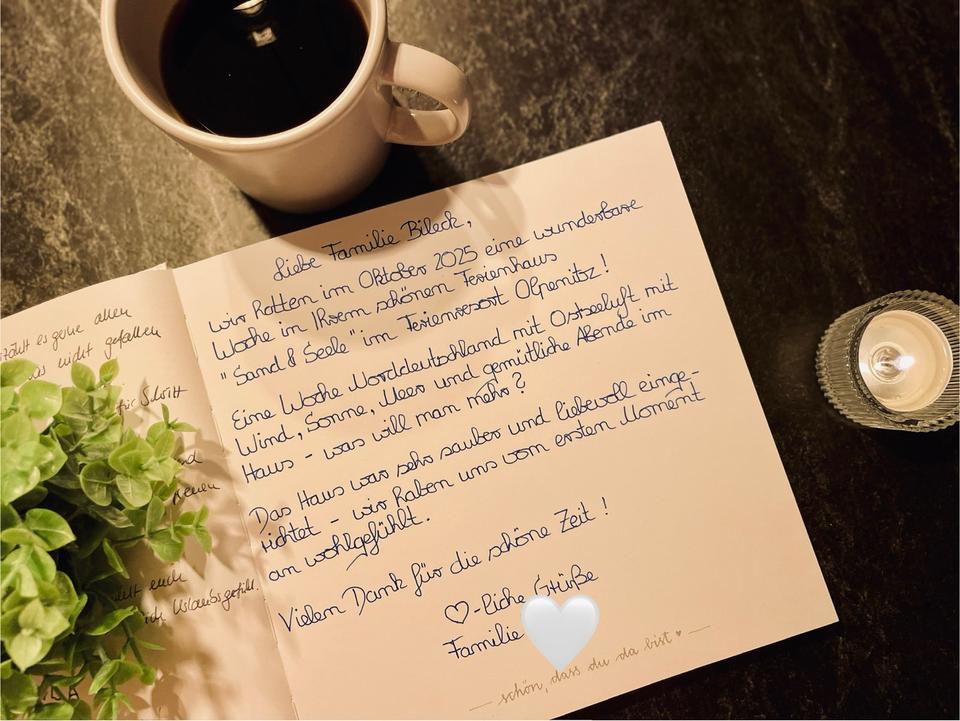 Liebe Familie Bileck,
wir hatten im Oktober 2025 eine wunderbare
Woche in Ihrem schönen Ferienhaus
"Sand & Seele" im Ferienresort Olpenitz!
Eine Woche Norddeutschland mit Ostseeluft mit
Wind, Sonne, Meer und gemütliche Abende im
Haus - was will man mehr?
Das Haus war sehr sauber und liebevoll einge-
richtet - wir haben uns vom ersten Moment
an wohlgefühlt.
Vielen Dank für die schöne Zeit!
♡-liche Grüße
Familie
— schön, dass du da bist ♥ —
es gerne allen
nicht gefallen
für Schritt
euch
Urlaubsgefühl.